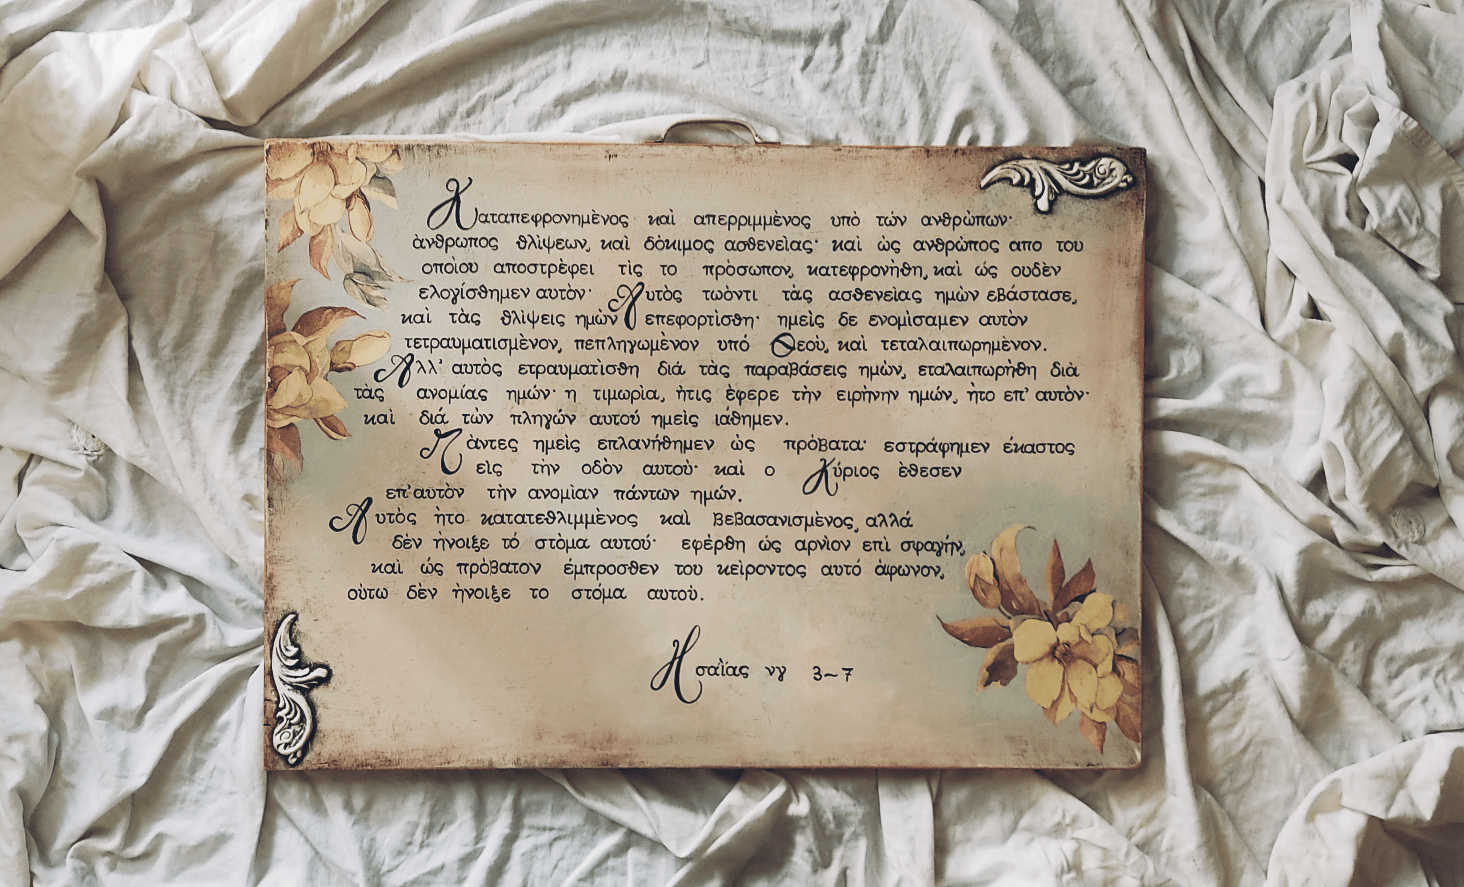 Καταπεφρονημὲνος καὶ απερριμμὲνος υπὸ τών ανθρὼπων·
ἀνθρωπος θλὶψεων, καὶ δὸκιμος ασθενεὶας· καὶ ὡς ανθρὼπος απο του
οποὶου αποστρὲφει τὶς το πρὸσωπον, κατεφρονὴθη, καὶ ὡς ουδὲν
ελογίσθημεν αυτὸν· Αυτὸς τωὸντι τὰς ασθενεὶας ημὼν εβάστασε,
καὶ τὰς θλὶψεις ημὼν επεφορτὶσθη· ημεὶς δε ενομὶσαμεν αυτὸν
τετραυματισμὲνον, πεπληγωμὲνον υπό Θεοὺ, καὶ τεταλαιπωρημὲνον.
Αλλ' αυτὸς ετραυματὶσθη διά τὰς παραβάσεις ημὼν, εταλαιπωρὴθη διὰ
τὰς ανομίας ημών· η τιμωρὶα, ἡτις ἐφερε τὴν ειρὴνην ημών, ἠτο επ' αυτὸν·
καὶ διά τὼν πληγών αυτού ημεὶς ιάθημεν.
Πὰντες ημεὶς επλανήθημεν ὡς πρὸβατα· εστράφημεν ἑκαστος
εὶς τὴν οδὸν αυτοὺ· καὶ ο Κύριος ἐθεσεν
επ'αυτὸν τὴν ανομὶαν πάντων ημών.
Αυτὸς ἠτο κατατεθλιμμὲνος καὶ βεβασανισμὲνος, αλλά
δὲν ἠνοιξε τό στὸμα αυτού· εφὲρθη ὡς αρνὶον επὶ σφαγήν,
καὶ ὡς πρὸβατον ἐμπροσθεν του κεὶροντος αυτό ἀφωνον,
οὑτω δὲν ἠνοιξε το στόμα αυτοὺ.
Ησαῒας νγ 3~7